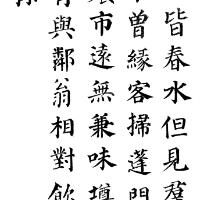 皆春水但見羣
曾緣客掃蓬門
市遠無兼味樽
與鄰翁相對飲